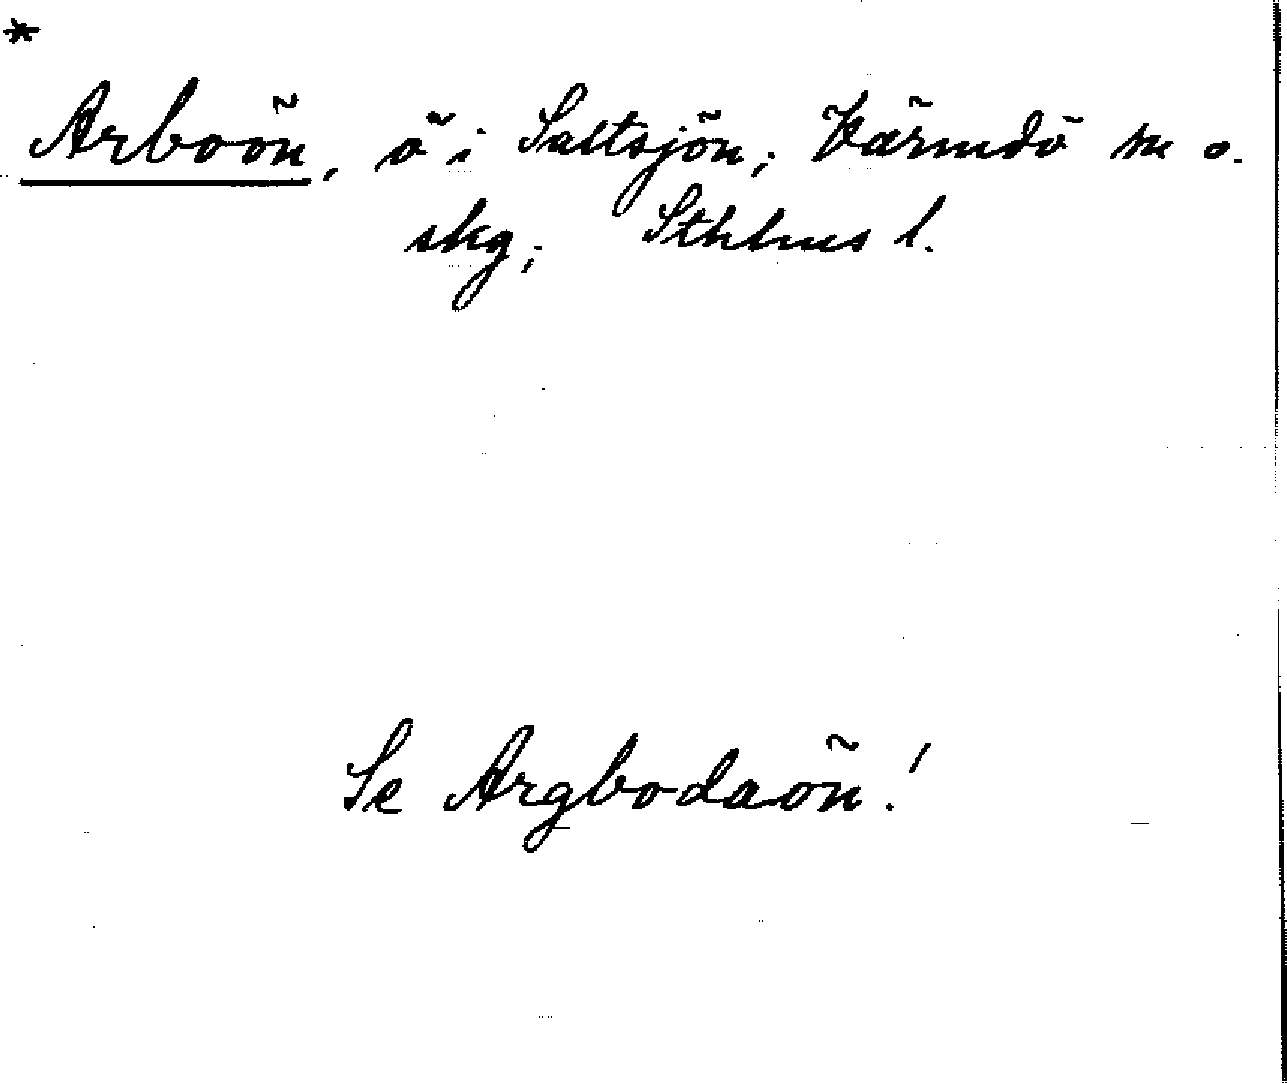 *
Arboön, ö i Saltsjön; Värmdö sn o.
skg; Sthlms l.
Se Argbodaön!